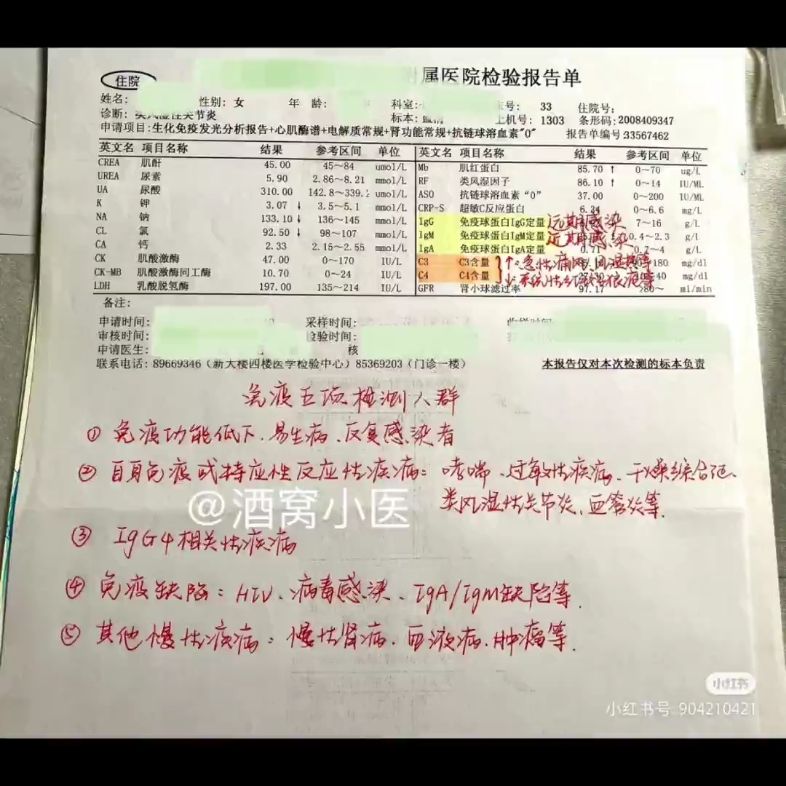 住院
附属医院检验报告单
姓名: 性别: 女 年 龄: 科室: 号: 33 住院号:
诊断: 类风湿性关节炎 标本: 血清 上机号: 1303 条形码: 2008409347
申请项目: 生化免疫发光分析报告+心肌酶谱+电解质常规+肾功能常规+抗链球溶血素"0" 报告单编号: 33567462
英文名 项目名称 结果 参考区间 单位 英文名 项目名称 结果 参考区间 单位
CREA 肌酐 45.00 45~84 umol/L Mb 肌红蛋白 85.70 ↑ 0~70 ug/L
UREA 尿素 5.90 2.86~8.21 mmol/L RF 类风湿因子 86.10 ↑ 0~14 IU/ML
UA 尿酸 310.00 142.8~339.2 umol/L ASO 抗链球溶血素"0" 37.00 0~200 IU/ML
K 钾 3.07 ↓ 3.5~5.1 mmol/L CRP-S 超敏C反应蛋白 0~6.6 mg/L
NA 钠 133.10 ↓ 136~145 mmol/L IgG 免疫球蛋白IgG定量 远期感染 7~16 g/L
CL 氯 92.50 ↓ 98~107 mmol/L IgM 免疫球蛋白IgM定量 近期感染 0.4~2.3 g/L
CA 钙 2.33 2.15~2.55 mmol/L IgA 免疫球蛋白IgA定量 g/L
CK 肌酸激酶 47.00 0~170 IU/L C3 C3含量 ↑:急性痛风,风湿热等 180 mg/dl
CK-MB 肌酸激酶同工酶 10.70 0~24 IU/L C4 C4含量 ↓:系统性红斑狼疮等 40 mg/dl
LDH 乳酸脱氢酶 197.00 135~214 IU/L GFR 肾小球滤过率 97.17 ml/min
备注:
申请时间: 采样时间:
审核时间: 检验时间:
申请医生: 核
联系电话: 89669346 (新大楼四楼医学检验中心) 85369203 (门诊一楼) 本报告仅对本次检测的标本负责
免疫五项检测人群
① 免疫功能低下、易生病、反复感染者
② 自身免疫或特应性反应性疾病: 哮喘、过敏性疾病、干燥综合征、
类风湿性关节炎、血管炎等.
@酒窝小医
③ IgG4相关性疾病
④ 免疫缺陷: HIV、病毒感染、IgA/IgM缺陷等.
⑤ 其他慢性疾病: 慢性肾病、血液病、肿瘤等.
小红书
小红书号: 904210421